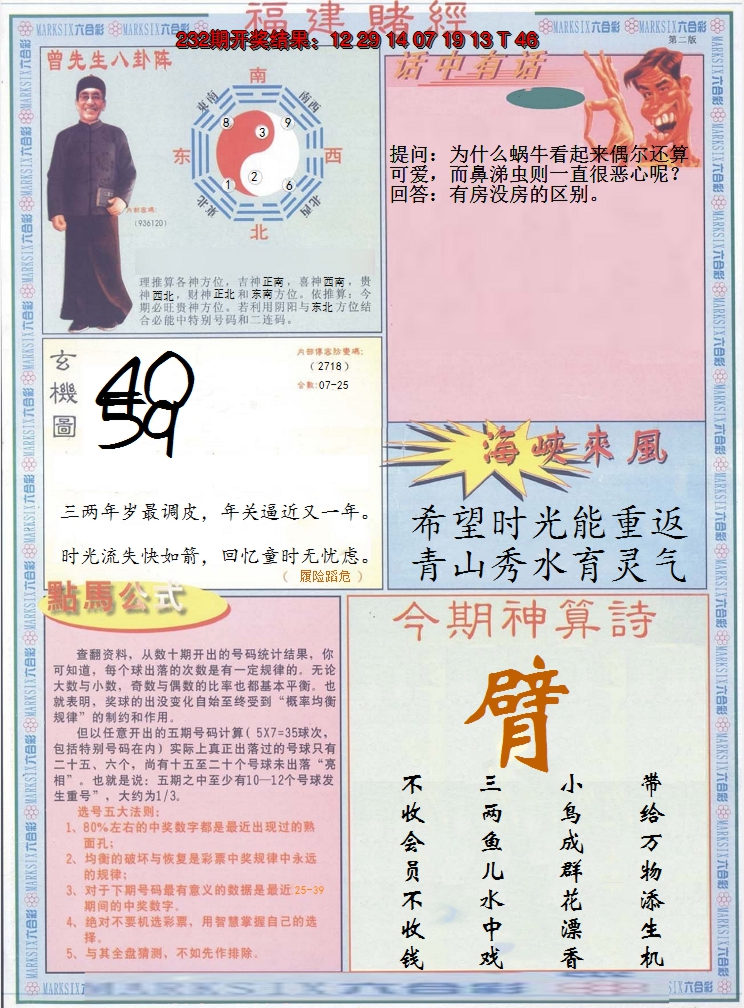 福建賭經
232期开奖结果：12 29 14 07 19 13 T 46
MARKSIX六合彩
第二版
曾先生八卦阵
南
東南
南西
8
9
3
东
西
2
1
6
東北
北西
北
內部密碼:
(936120)
理推算各神方位，吉神正南，喜神西南，贵
神西北，财神正北和东南方位。依推算：今
期必旺贵神方位。若利用阴阳与东北方位结
合必能中特别号码和二连码。
话中有话
提问：为什么蜗牛看起来偶尔还算
可爱，而鼻涕虫则一直很恶心呢？
回答：有房没房的区别。
玄機圖
内部傳密防變碼:
(2718)
合数:07-25
40
59
三两年岁最调皮，年关逼近又一年。
时光流失快如箭，回忆童时无忧虑。
（ 履险蹈危 ）
海峽來風
希望时光能重返
青山秀水育灵气
點馬公式
查翻资料，从数十期开出的号码统计结果，你
可知道，每个球出落的次数是有一定规律的。无论
大数与小数，奇数与偶数的比率也都基本平衡。也
就表明，奖球的出没变化自始至终受到“概率均衡
规律”的制约和作用。
但以任意开出的五期号码计算(5X7=35球次，
包括特别号码在内)实际上真正出落过的号球只有
二十五、六个，尚有十五至二十个号球未出落“亮
相”。也就是说：五期之中至少有10—12个号球发
生重号”，大约为1/3。
选号五大法则：
1、80%左右的中奖数字都是最近出现过的熟
面孔；
2、均衡的破坏与恢复是彩票中奖规律中永远
的规律；
3、对于下期号码最有意义的数据是最近25-39
期间的中奖数字。
4、绝对不要机选彩票，用智慧掌握自己的选
择。
5、与其全盘猜测，不如先作排除。
今期神算詩
臂
带给万物添生机
小鸟成群花漂香
三两鱼儿水中戏
不收会员不收钱